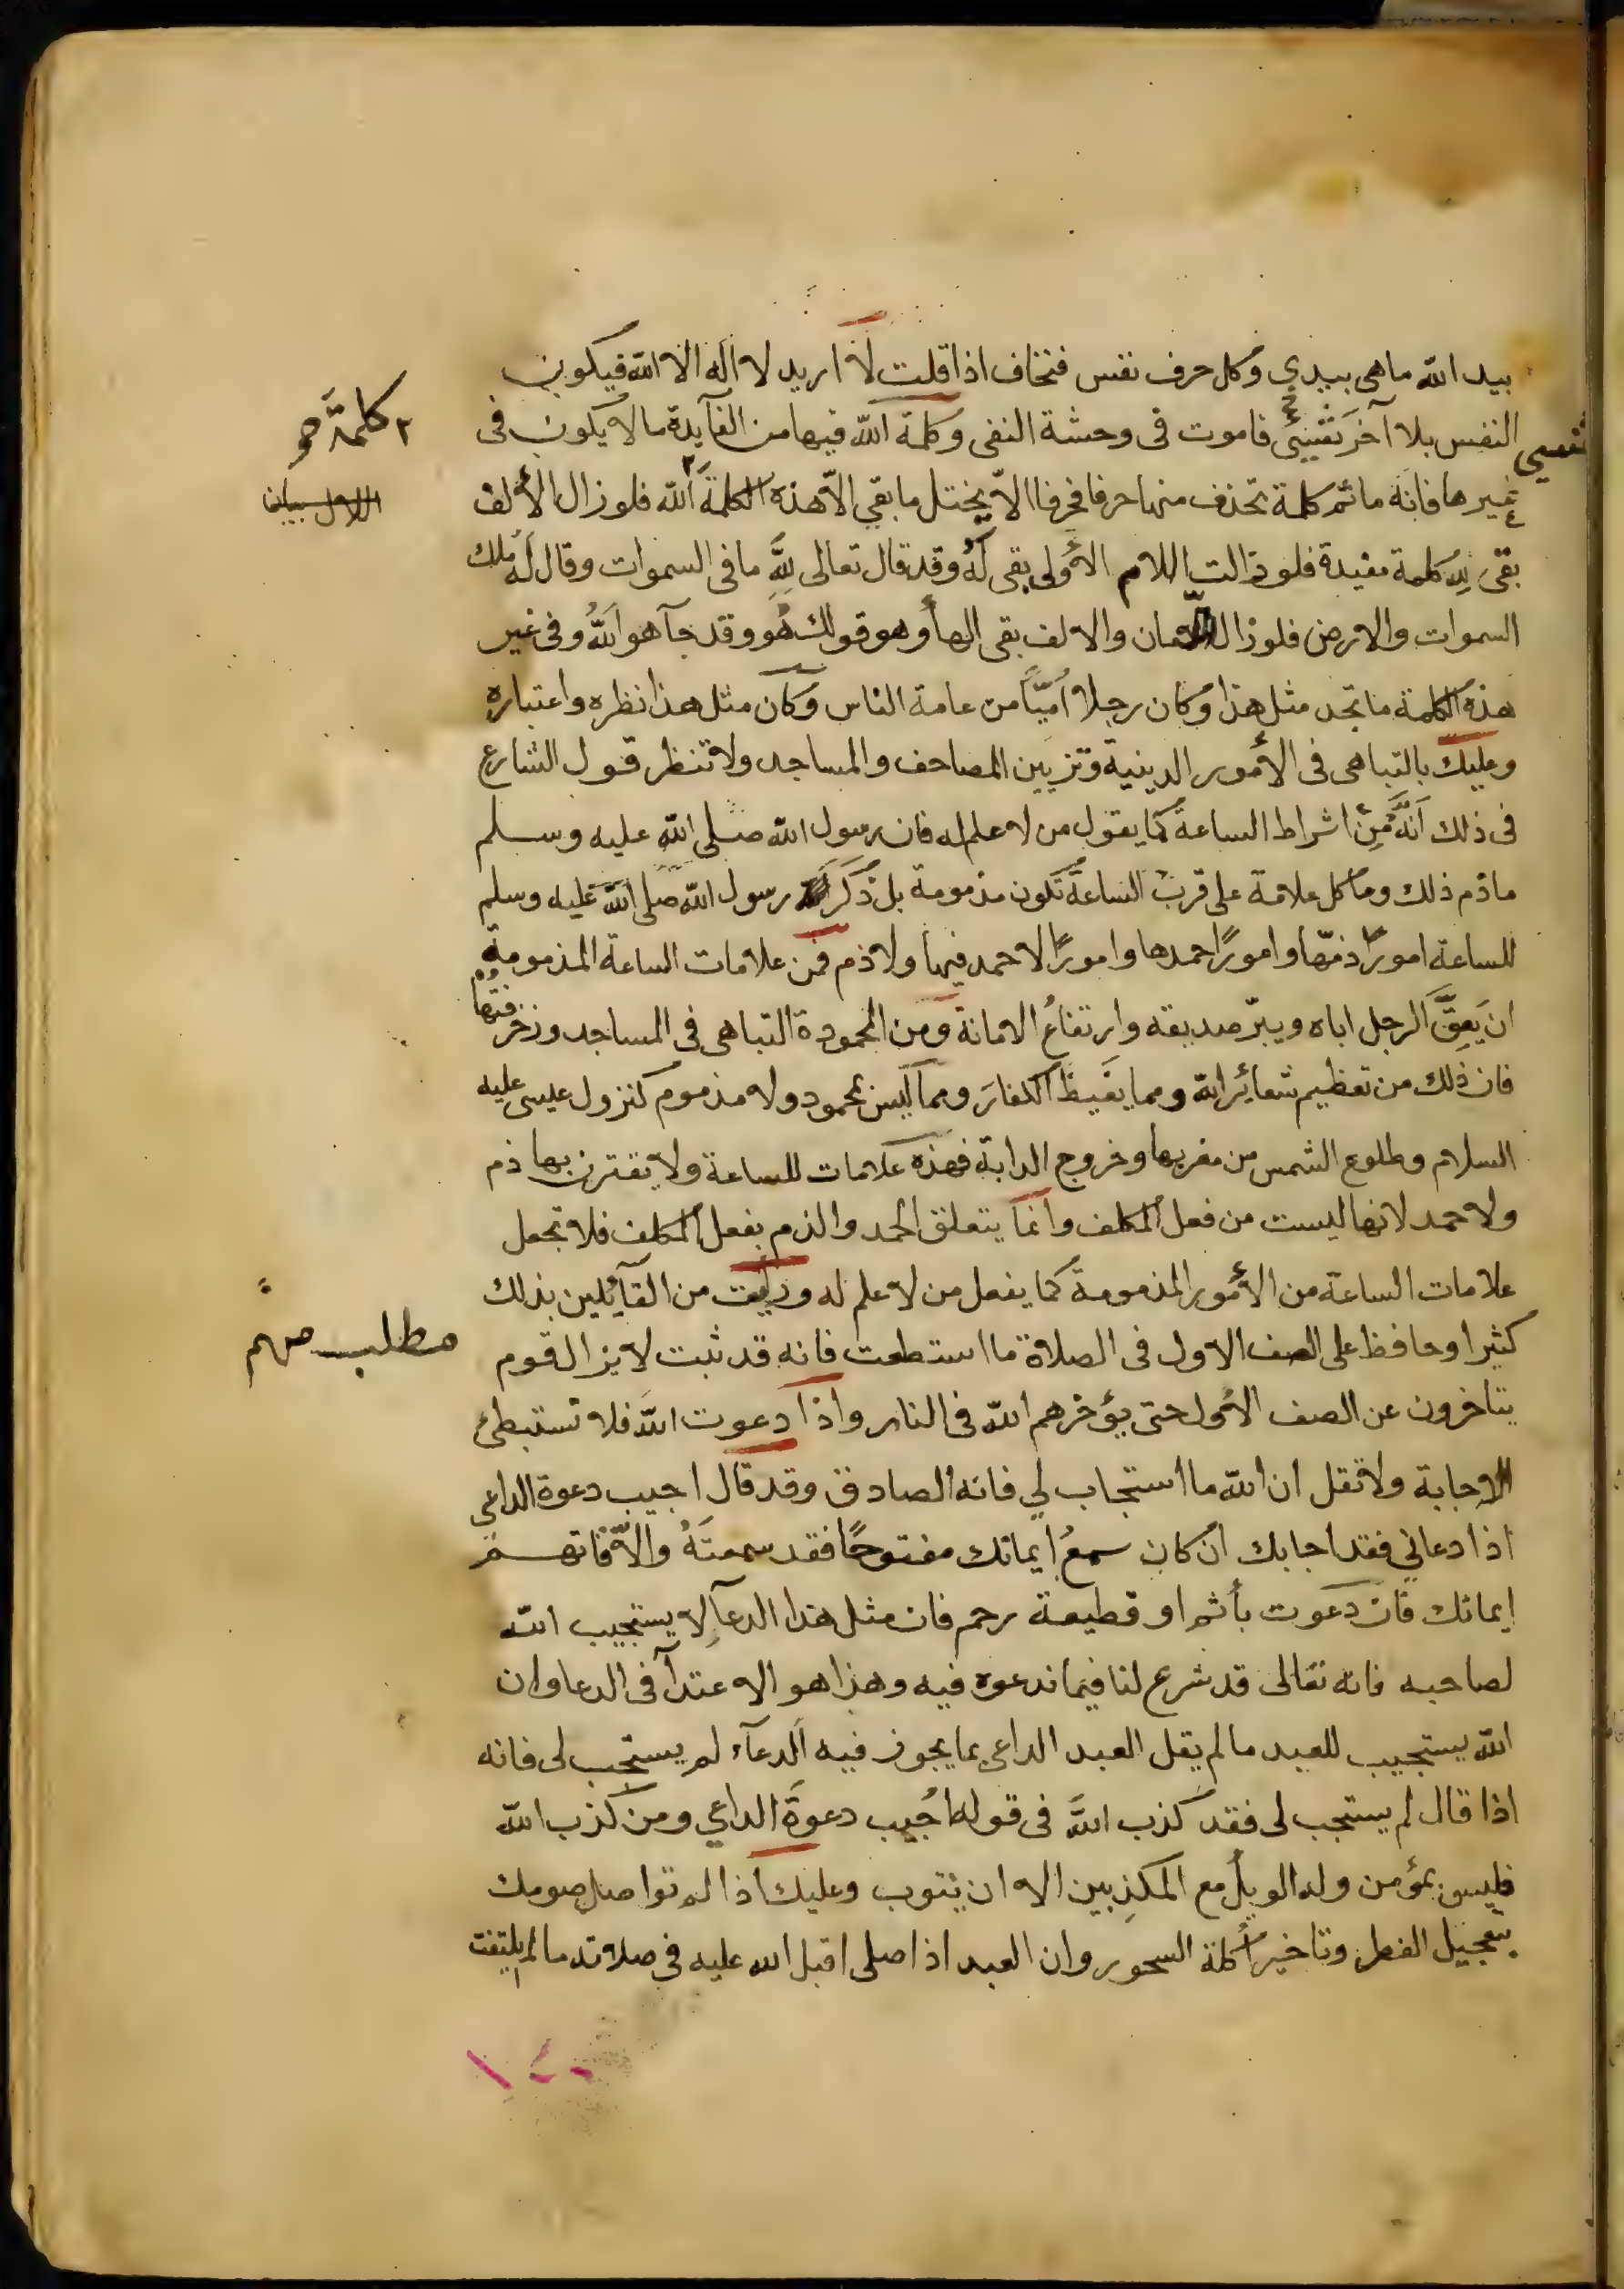 بيد الله ما هى بيدي وكل حرف نفس فنخاف اذا قلت لا اريد لا اله الا الله فيكون
النفس بلا آخر نفسي فاموت فى وحشة النفى وكلمة الله فيها من الفآيدة ما لا يكون فى
غيرها فانه ما ثم كلمة تحذف منها حرفا فحرفا الا يختل ما بقى الا هذه الكلمة الله فلو زال الألف
بقى لله كلمة مفيدة فلو زالت اللام الأولى بقى له وقد قال تعالى لله ما فى السموات وقال له ملك
السموات والارض فلو زال اللامان والالف بقى الهآ وهو قولك هُو وقد جآ هو الله وفى غير
هذه الكلمة ما تجد مثل هذا وكان رجلا اُمّيّاً من عامة الناس وكان مثل هذا نظره واعتباره
وعليك بالتباهى فى الأمور الدينية وتزيين المصاحف والمساجد ولا تنظر قول الشارع
فى ذلك انّه من اشراط الساعة كما يقول من لا علم له فان رسول الله صلى الله عليه وسلم
ما ذم ذلك وما كل علامة على قرب الساعة تكون مذمومة بل ذكر رسول الله صلى الله عليه وسلم
للساعة امورًا ذمّها وامورًا حمدها وامورًا لا حمد فيها ولا ذم فمن علامات الساعة المذمومة
ان يَعِقَّ الرجل اباه ويبرّ صديقه وارتفاعُ الامانة ومن المحمودة التباهى فى المساجد وزخرفتها
فان ذلك من تعظيم شعائر الله ومما يغيظ الكفارَ ومما ليس بمحمود ولا مذموم كنزول عيسى عليه
السلام وطلوع الشمس من مغربها وخروج الدابة فهذه علامات للساعة ولا يقترن بها ذم
ولا حمد لانها ليست من فعل المكلف وانما يتعلق الحمد والذم بفعل المكلف فلا تجعل
علامات الساعة من الأمور المذمومة كما يفعل من لا علم له ورأيت من القآئلين بذلك
كثيرا وحافظ على الصف الاول فى الصلاة ما استطعت فانه قد ثبت لا يزال قوم
يتاخرون عن الصف الأول حتى يؤخرهم الله فى النار واذا دعوت الله فلا تستبطئ
الاجابة ولا تقل ان الله ما استجاب لي فانه الصادق وقد قال اجيب دعوة الداعي
اذا دعاني فقد اجابك ان كان سمعُ ايمانك مفتوحًا فقد سمعتَهُ والّا فاتهم
ايمانك فان دعوت بأثم او قطيعة رحم فان مثل هذا الدعآ لا يستجيب الله
لصاحبه فانه تعالى قد شرع لنا فيما ندعوه فيه وهذا هو الاعتدآ فى الدعا وان
الله يستجيب للعبد ما لم يقل العبد الداعي بما يجوز فيه الدعآء لم يستجب لى فانه
اذا قال لم يستجب لى فقد كذب الله فى قوله اُجيب دعوة الداعي ومن كذب الله
فليس بمؤمن وله الويل مع المكذبين الا ان يتوب وعليك اذا لم تواصل صومك
بتعجيل الفطر وتاخير اُكلة السحور وان العبد اذا صلى اقبل الله عليه فى صلاته ما لم يلتفت
نفسي
٢ كلمة هو
مطلب مهم
١٤٠